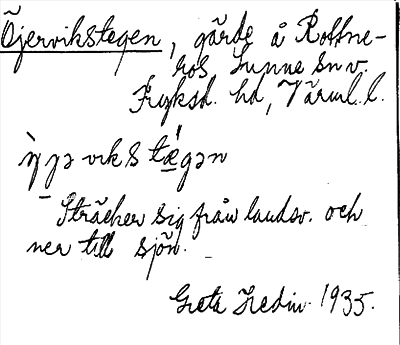 Öjervikstegen, gärde å Rottne-
ros Sunne sn v.
Fryksd. hd, Värml. l.
ỳjərvikstǽgən
Sträcker sig från landsv. och
ner till sjön.
Greta Hedin 1935.